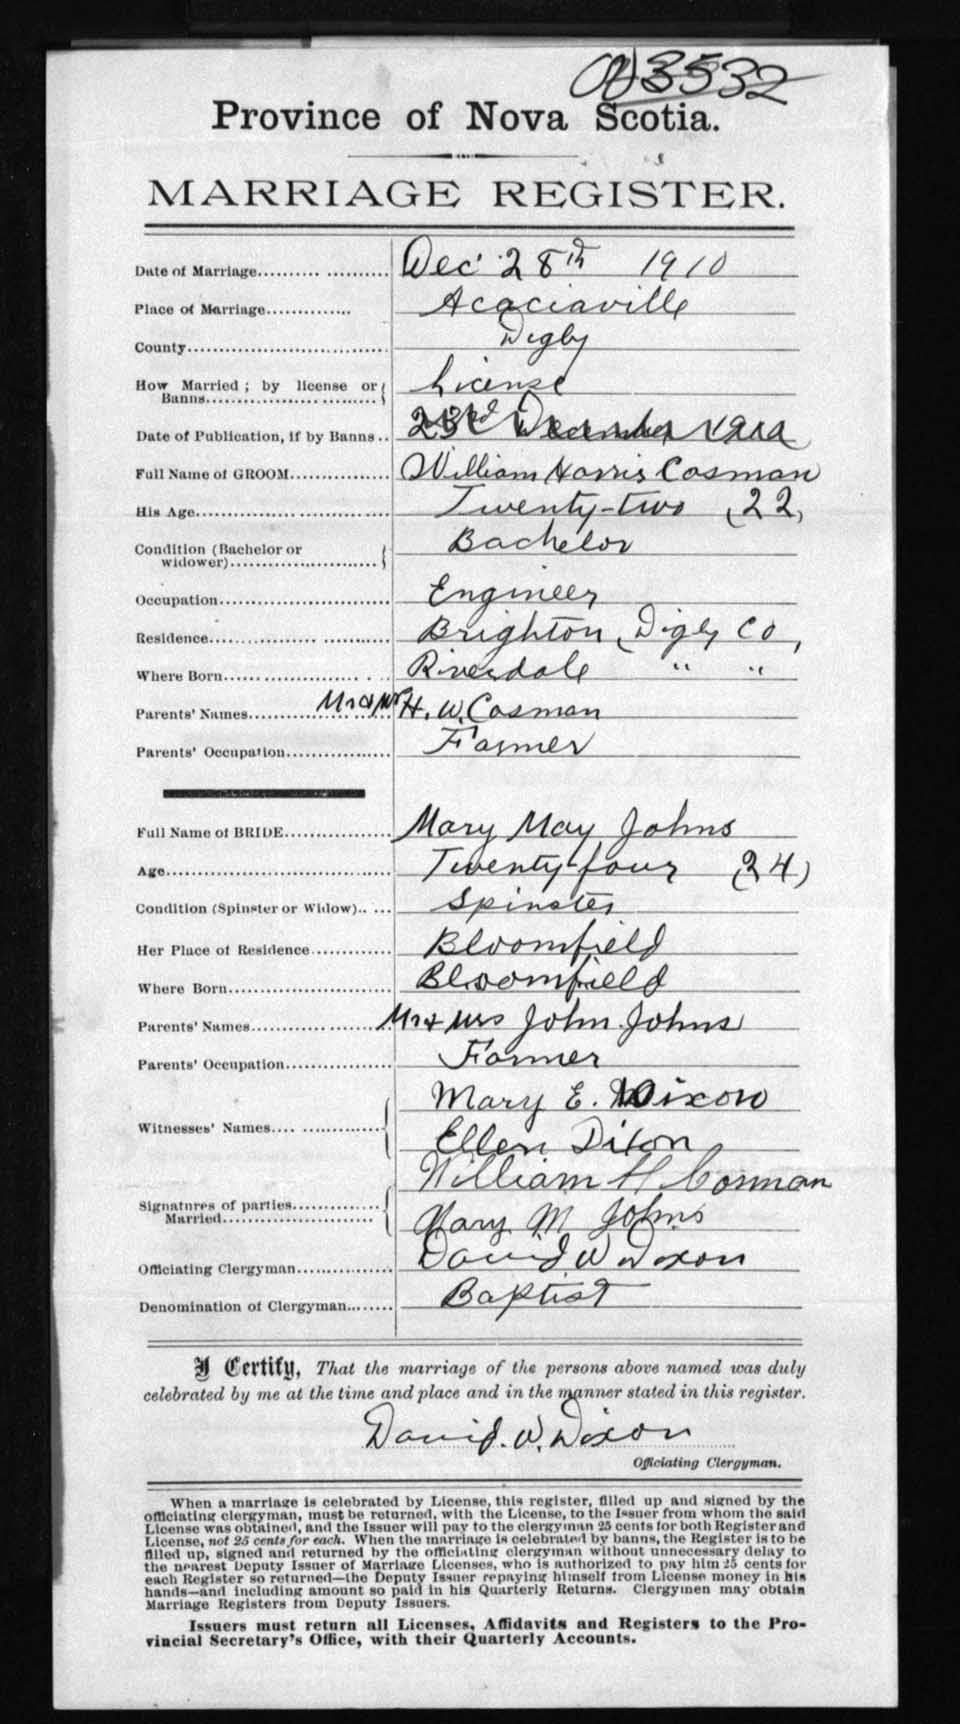 3532
Province of Nova Scotia.
MARRIAGE REGISTER.
Date of Marriage.......... Dec 28th 1910
Place of Marriage.............. Acaciaville
County.................................. Digby
How Married; by license or
Banns................................ License
Date of Publication, if by Banns.. 23rd December 1910
Full Name of GROOM................. William Harris Cosman
His Age................................. Twenty-two (22)
Condition (Bachelor or
widower)......................... Bachelor
Occupation.............................. Engineer
Residence................................ Brighton, Digby Co,
Where Born............................ Riverdale " "
Parents' Names........................ Mr & Mrs H. W. Cosman
Parents' Occupation.................. Farmer
Full Name of BRIDE.................. Mary May Johns
Age........................................ Twenty-four (24)
Condition (Spinster or Widow)..... Spinster
Her Place of Residence............. Bloomfield
Where Born............................. Bloomfield
Parents' Names........................ Mr & Mrs John Johns
Parents' Occupation................... Farmer
Witnesses' Names.................... Mary E. Dixon
Ellen Dixon
Signatures of parties............... William H Cosman
Married............................ Mary M Johns
Officiating Clergyman................ David W Dixon
Denomination of Clergyman........ Baptist
I Certify, That the marriage of the persons above named was duly
celebrated by me at the time and place and in the manner stated in this register.
David. W. Dixon
Officiating Clergyman.
When a marriage is celebrated by License, this register, filled up and signed by the
officiating clergyman, must be returned, with the License, to the Issuer from whom the said
License was obtained, and the Issuer will pay to the clergyman 25 cents for both Register and
License, not 25 cents for each. When the marriage is celebrated by banns, the Register is to be
filled up, signed and returned by the officiating clergyman without unnecessary delay to
the nearest Deputy Issuer of Marriage Licenses, who is authorized to pay him 25 cents for
each Register so returned—the Deputy Issuer repaying himself from License money in his
hands—and including amount so paid in his Quarterly Returns. Clergymen may obtain
Marriage Registers from Deputy Issuers.
Issuers must return all Licenses, Affidavits and Registers to the Pro-
vincial Secretary's Office, with their Quarterly Accounts.